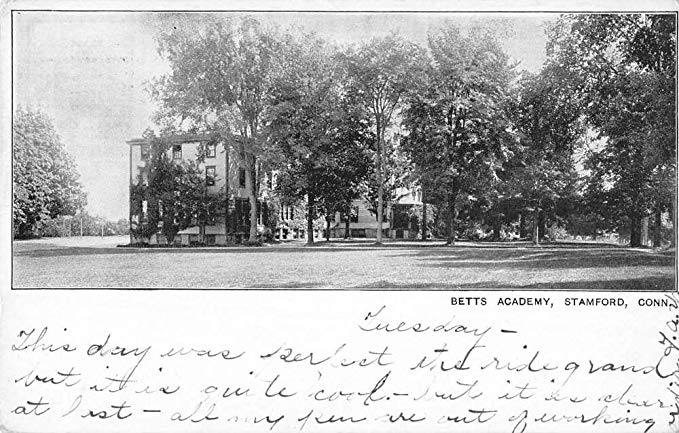 BETTS ACADEMY, STAMFORD, CONN.
Tuesday –
This day was perfect the ride grand
but it is quite cool – but it is clear
at last – all my pen are out of working